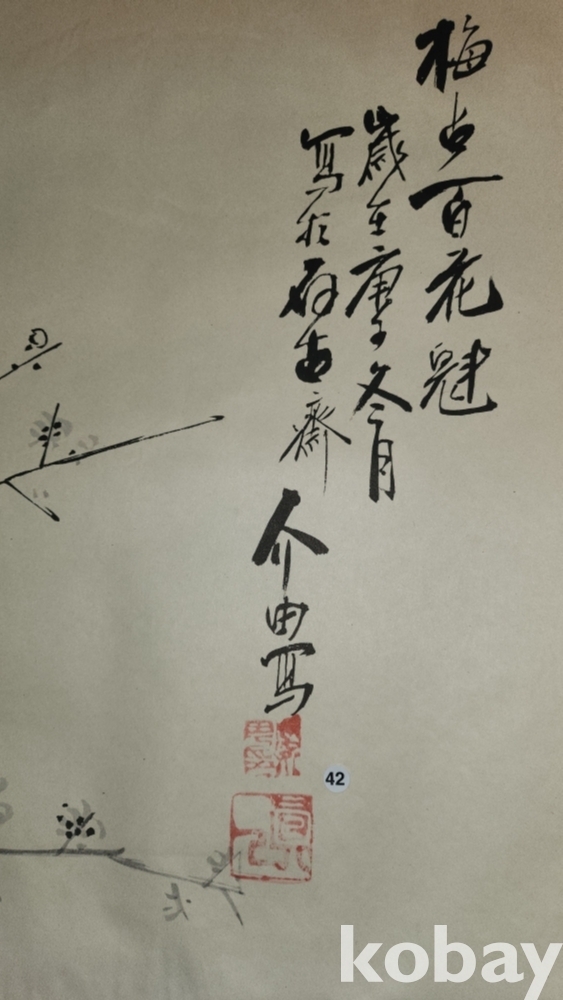 梅占百花魁
歲在庚子冬月
寫於古齋
介由寫
42
kobay